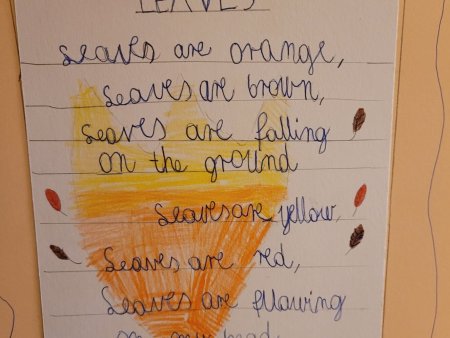 LEAVES
Leaves are orange,
Leaves are brown,
Leaves are falling
on the ground
Leaves are yellow,
Leaves are red,
Leaves are fllawing
on my head.